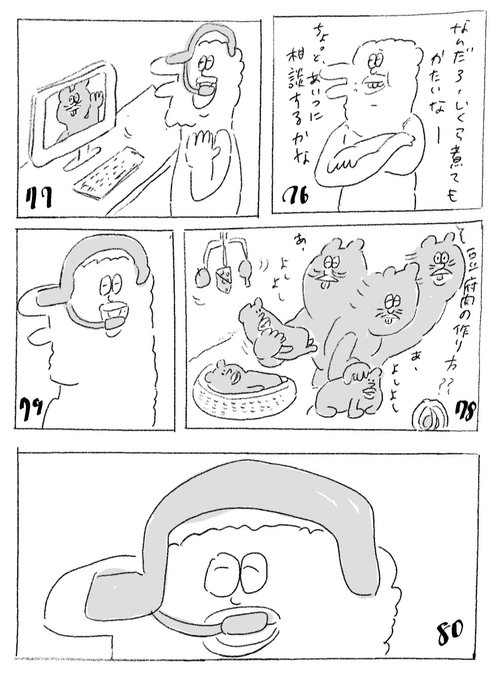 なんだろ、いくら煮ても
かたいなー
ちょっと、あいつに
相談するかな
76
77
え、豆腐肉の作り方??
あ、
よしよし
あ、
よしよし
78
79
80